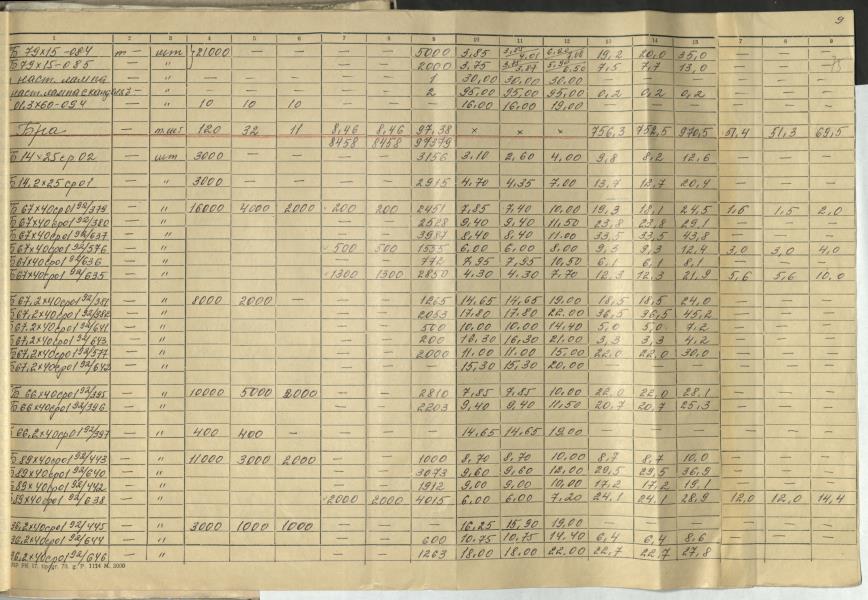 9
1 2 3 4 5 6 7 8 9 10 11 12 13 14 15 7 8 9
Б 79х15-084 шт 21000 — — — — 5000 3,85 19,2 20,0 35,0 — — —
Б 79х15-085 — " — — — — 2000 3,75 7,5 7,7 13,0 — — —
наст. лампа — " — — — — — 1 30,00 30,00 30,00 — — — — — —
— " — — — — — 2 95,00 95,00 95,00 0,2 0,2 0,2 — — —
01.3х60-094 — " 10 10 10 — — — 16,00 16,00 19,00 — — — — — —
Бра — т.шт 120 32 11 8,46 8,46 97,38 х х х 756,3 752,5 970,5 51,4 51,3 69,5
8458 8458 97379
Б 14х25ср02 — шт 3000 — — — — 3156 3,10 2,60 4,00 9,8 8,2 12,6 — — —
Б 14,2х25ср01 — " 3000 — — — — 2915 4,70 4,35 7,00 13,7 12,7 20,4 — — —
Б 67х40ср01 92/379 — " 16000 4000 2000 200 200 2451 7,85 7,40 10,00 19,3 18,1 24,5 1,6 1,5 2,0
Б 67х40ср01 92/380 — " — — 2528 9,40 9,40 11,50 23,8 23,8 29,1 — — —
Б 67х40ср01 92/637 — " — — 3987 8,40 8,40 11,00 33,5 33,5 43,8 — — —
Б 67х40ср01 92/576 — " 500 500 1555 6,00 6,00 8,00 9,3 9,3 12,4 3,0 3,0 4,0
Б 67х40ср01 92/636 — " — — 772 7,95 7,95 10,50 6,1 6,1 8,1 — — —
Б 67х40ср01 92/635 — " 1300 1300 2850 4,30 4,30 7,70 12,3 12,3 21,9 5,6 5,6 10,0
Б 67,2х40ср01 92/381 — " 8000 2000 — — — 1265 14,65 14,65 19,00 18,5 18,5 24,0 — — —
Б 67,2х40ср01 92/382 — " — — 2053 17,80 17,80 22,00 36,5 36,5 45,2 — — —
Б 67,2х40ср01 92/641 — " — — 500 10,00 10,00 14,40 5,0 5,0 7,2 — — —
Б 67,2х40ср01 92/643 — " — — 200 16,30 16,30 21,00 3,3 3,3 4,2 — — —
Б 67,2х40ср01 92/577 — " — — 2000 11,00 11,00 15,00 22,0 22,0 30,0 — — —
Б 67,2х40ср01 92/642 — " — — — 15,30 15,30 20,00 — — — — — —
Б 66х40ср01 92/395 — " 10000 5000 2000 — — 2810 7,85 7,85 10,00 22,0 22,0 28,1 — — —
Б 66х40ср01 92/396 — " — — 2203 9,40 9,40 11,50 20,7 20,7 25,3 — — —
Б 66,2х40ср01 92/397 — " 400 400 — — — — 14,65 14,65 19,00 — — — — — —
Б 89х40ср01 92/443 — " 11000 3000 2000 — — 1000 8,70 8,70 10,00 8,7 8,7 10,0 — — —
Б 89х40ср01 92/640 — " — — 3073 9,60 9,60 12,00 29,5 29,5 36,9 — — —
Б 89х40ср01 92/442 — " — — 1912 9,00 9,00 10,00 17,2 17,2 19,1 — — —
Б 89х40ср01 92/638 — " 2000 2000 4015 6,00 6,00 7,20 24,1 24,1 28,9 12,0 12,0 14,4
26,2х40ср01 92/445 — " 3000 1000 1000 — — — 16,25 15,90 19,00 — — — — — —
26,2х40ср01 92/644 — " — — 600 10,75 10,75 14,40 6,4 6,4 8,6 — — —
26,2х40ср01 92/646 — " — — 1263 18,00 18,00 22,00 22,7 22,7 27,8 — — —